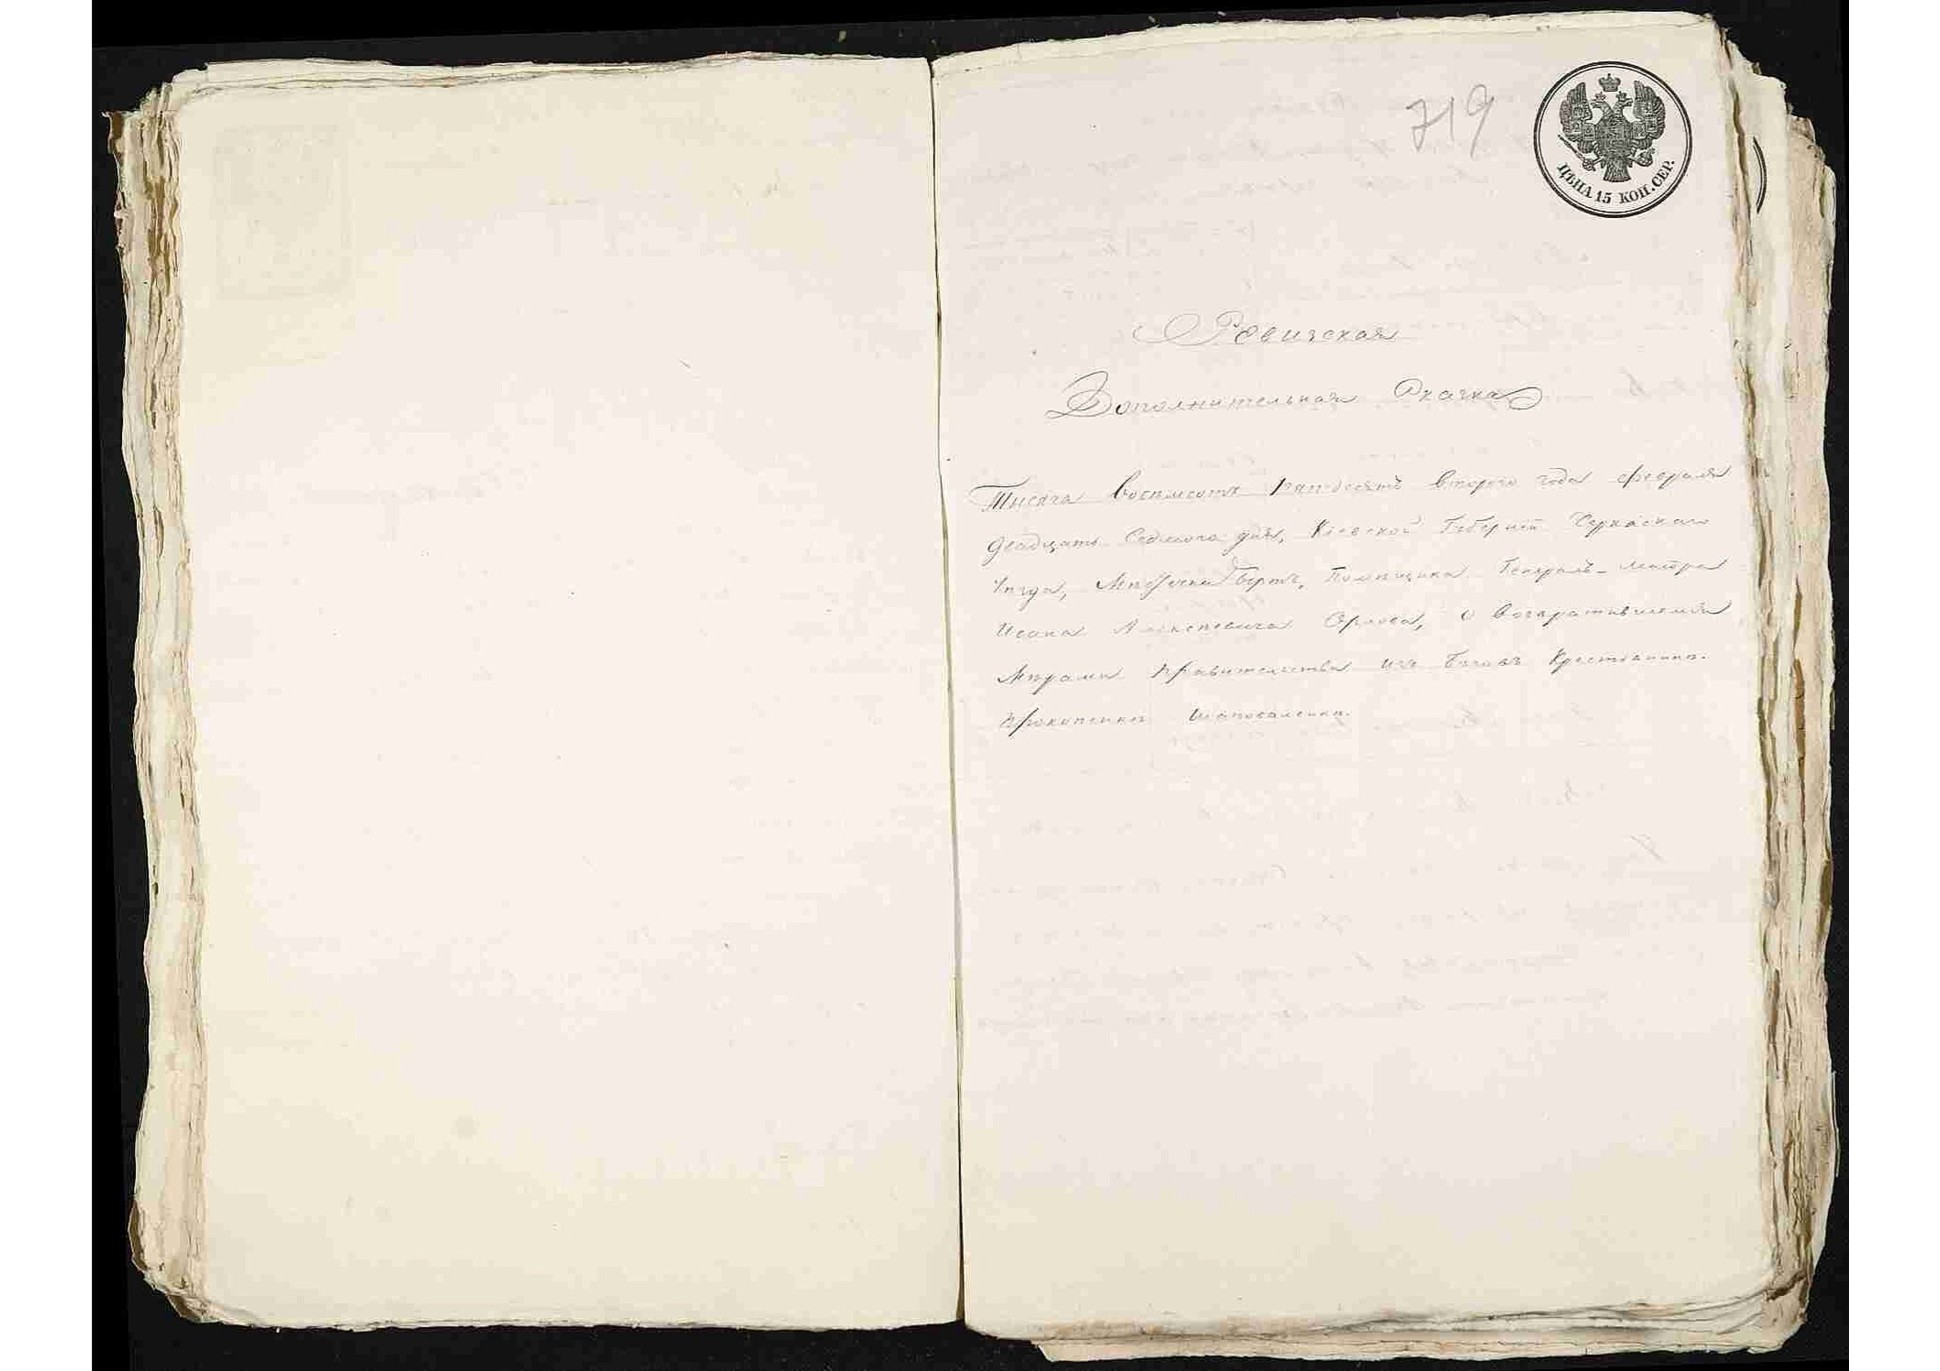 719
ЦѢНА 15 КОП. СЕР.
Ревизская
Дополнительная Скачка
Тысяча восемсотъ пятдесятъ втораго года февраля
двадцать седмаго дня, Кіевской Губерніи Черкаскаго
уѣзда, Мѣстечка помѣщика Генералъ-Маіора
Ивана Алексѣевича Орлова, о возвратившемся
Мѣрами правительства изъ бѣговъ крестянинѣ.
Прокопенкѣ Шаповаленкѣ.